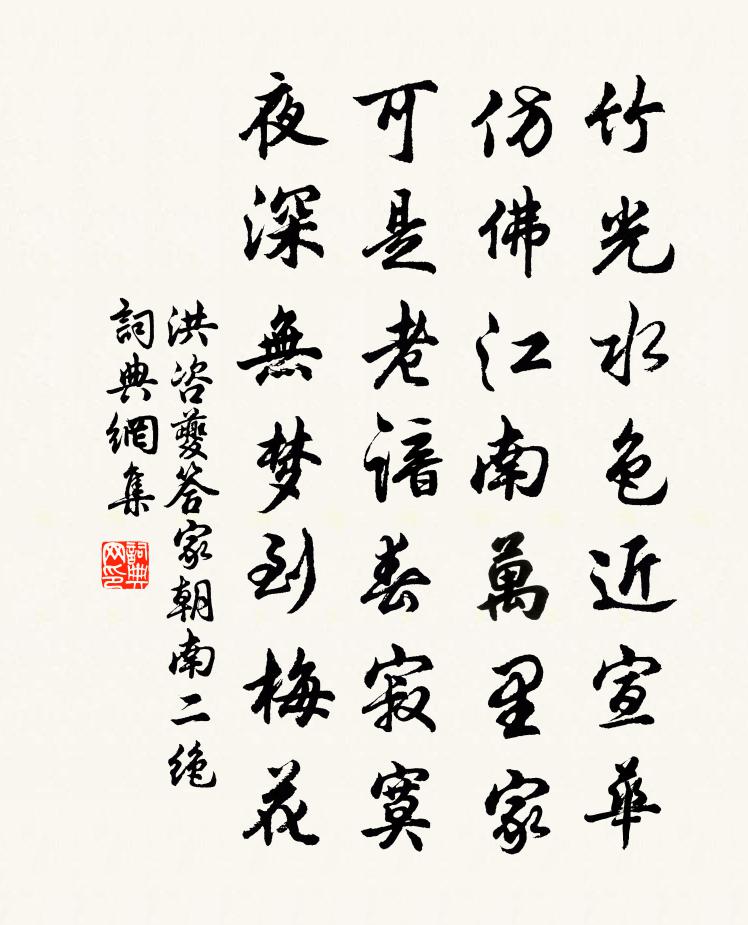 竹光水色近宣華
仿佛江南萬里家
可是老諳春寂寞
夜深無梦到梅花
洪咨夔答家朝南二绝
詞典網集
詞典网印